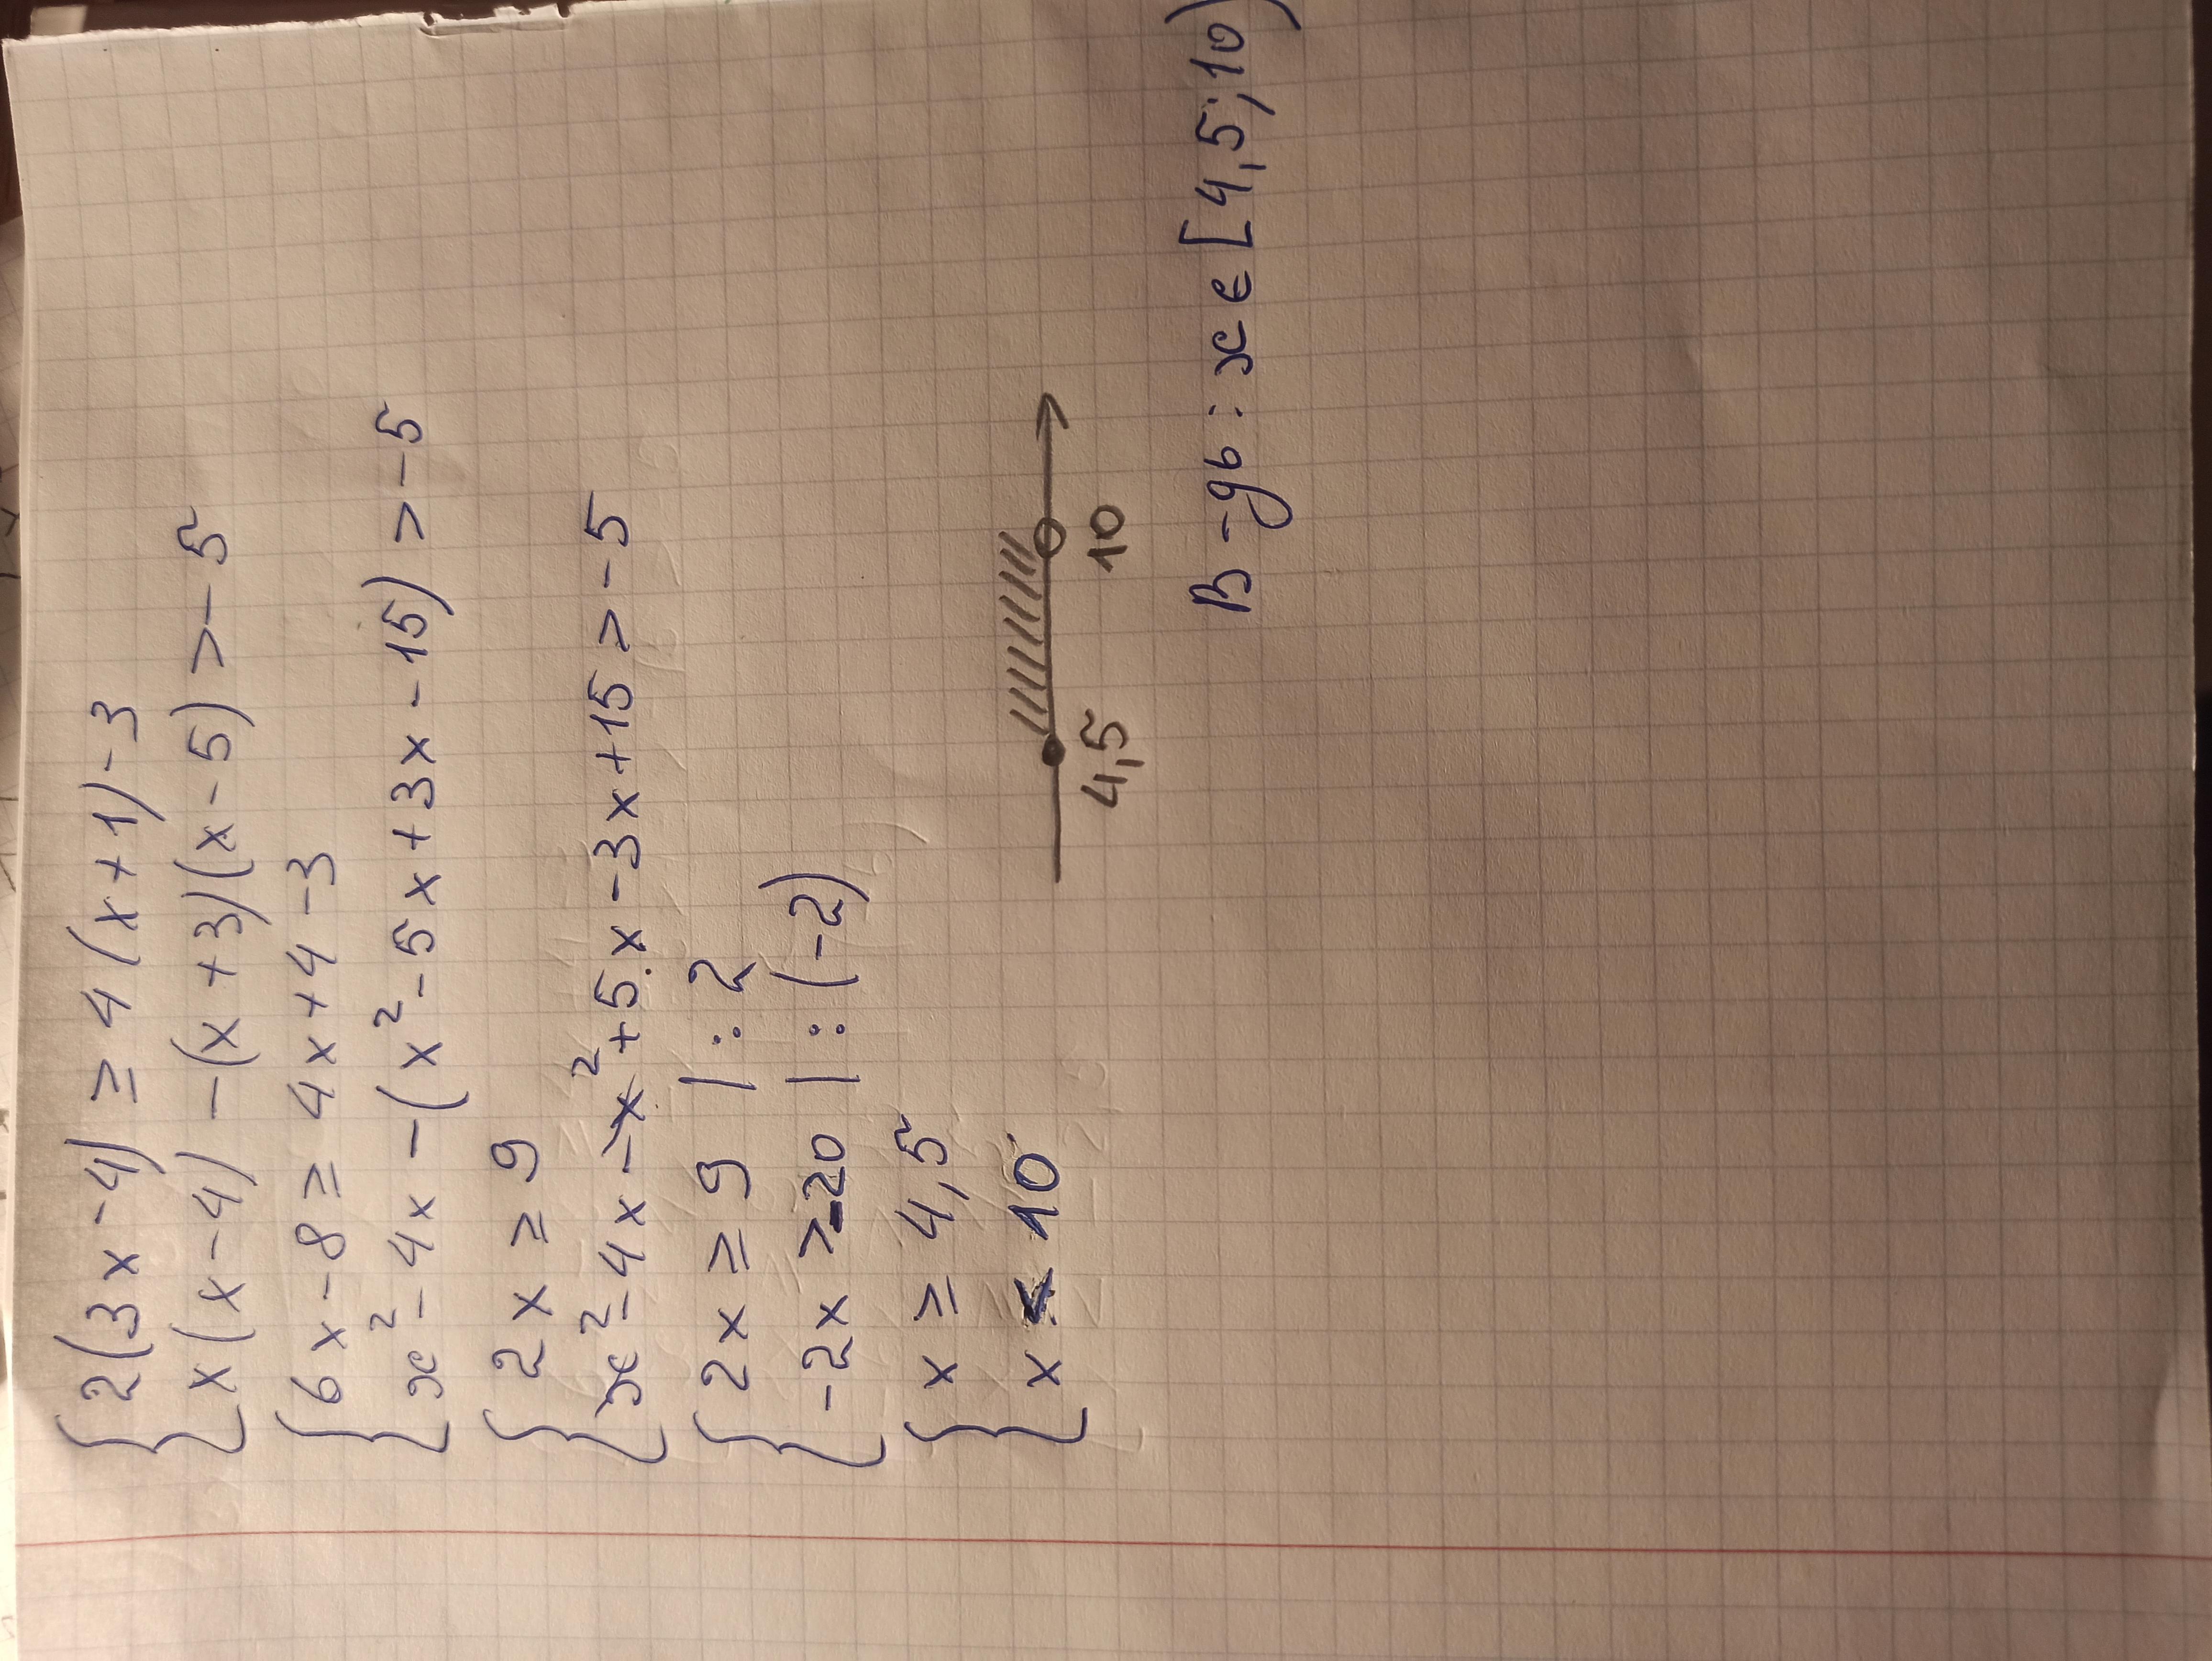 { 2(3x-4) ≥ 4(x+1)-3
x(x-4) -(x+3)(x-5) >-5
{ 6x-8 ≥ 4x+4-3
x²-4x-(x²-5x+3x-15) >-5
{ 2x ≥ 9
x²-4x-x²+5x-3x+15>-5
{ 2x ≥ 9 |:2
-2x >-20 |:(-2)
{ x ≥ 4,5
x < 10
4,5 10
В-дь: x∈[4,5;10)